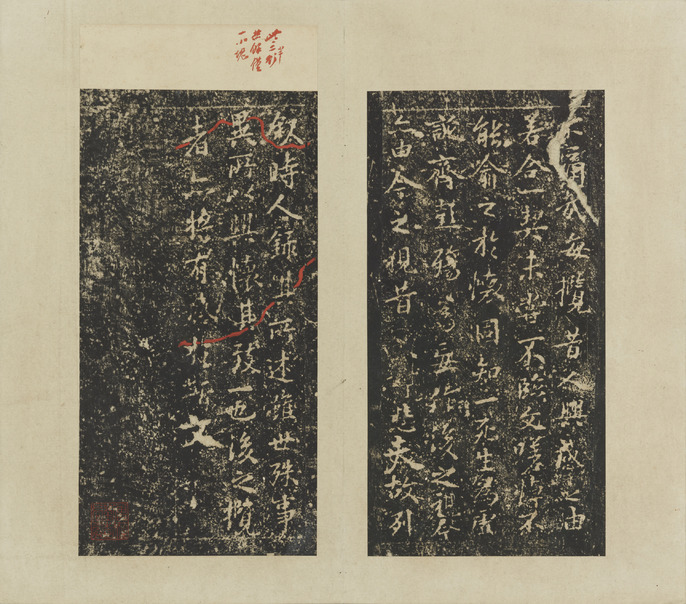 痛哉每攬昔人興感之由
若合一契未嘗不臨文嗟悼不
能喻之於懷固知一死生為虛
誕齊彭殤為妄作後之視今
亦由今之視昔悲夫故列
敘時人錄其所述雖世殊事
異所以興懷其致一也後之攬
者亦將有感於斯文